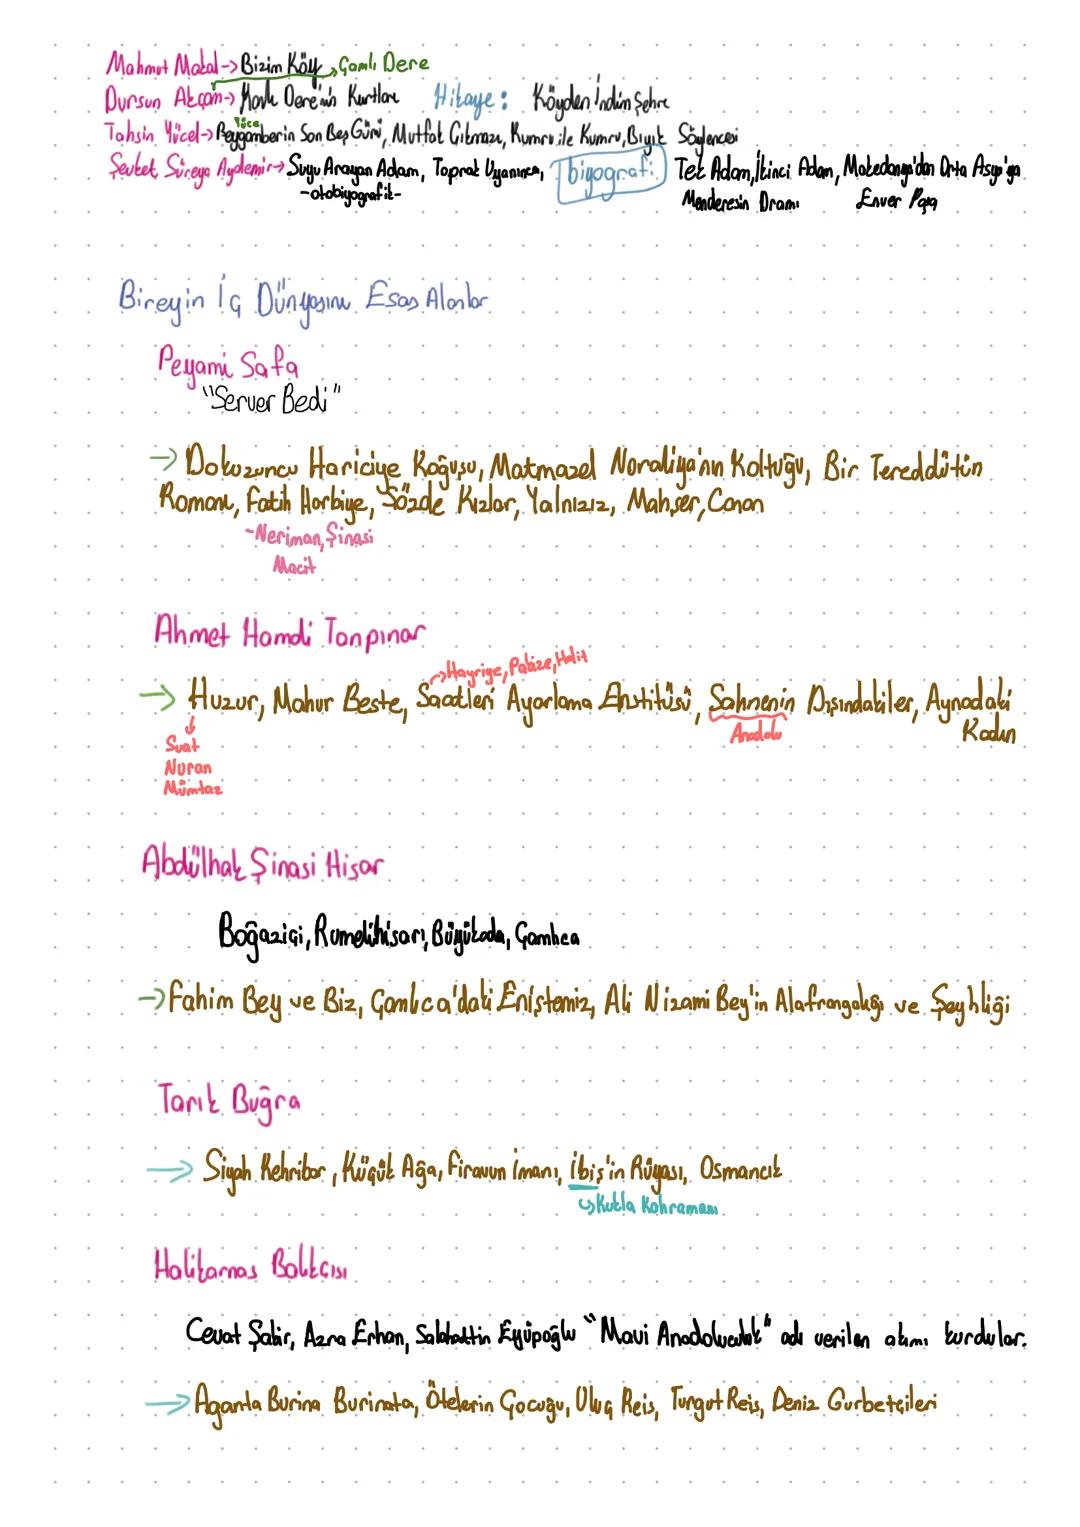 Mahmut Makal→Bizim Köy→Çamlı Dere
Dursun Akçam→ Kanlı Dere'nin Kurtları Hikaye: Köyden İndim Şehre
Yüce
Tahsin Yücel→Peygamberin Son Beş Günü, Mutfak Çıkmazı, Kumru ile Kumru, Bıyık Söylencesi
Şevket Süreya Aydemir→ Suyu Arayan Adam, Toprak Uyanınca, biyografi: Tek Adam, İkinci Adam, Makedonya'dan Orta Asya'ya
-otobiyografik- Menderesin Dramı Enver Paşa
Bireyin İç Dünyasını Esas Alanlar
Peyami Safa
"Server Bedi"
→ Dokuzuncu Hariciye Koğuşu, Matmazel Noraliya'nın Koltuğu, Bir Tereddütün
Romanı, Fatih Harbiye, Sözde Kızlar, Yalnızız, Mahşer, Canan
-Neriman, Şinasi
Macit
Ahmet Hamdi Tanpınar
→Hayriye, Pakize, Halit
→ Huzur, Mahur Beste, Saatleri Ayarlama Enstitüsü, Sahnenin Dışındakiler, Aynadaki
Kadın
Anadolu
Suat
Nuran
Mümtaz
Abdülhak Şinasi Hisar
Boğaziçi, Rumelihisarı, Büyükada, Çamlıca
→Fahim Bey ve Biz, Çamlıca'daki Eniştemiz, Ali Nizami Bey'in Alafrangalığı ve Şeyhliği
Tarık Buğra
→ Siyah Kehribar, Küçük Ağa, Firavun İmanı, İbiş'in Rüyası, Osmancık
↪Kukla Kahramanı
Halikarnas Balıkçısı
Cevat Şakir, Azra Erhan, Sabahattin Eyüpoğlu "Mavi Anadoluculuk" adı verilen akımı kurdular.
→Aganta Burina Burinata, Ötelerin Çocuğu, Uluç Reis, Turgut Reis, Deniz Gurbetçileri